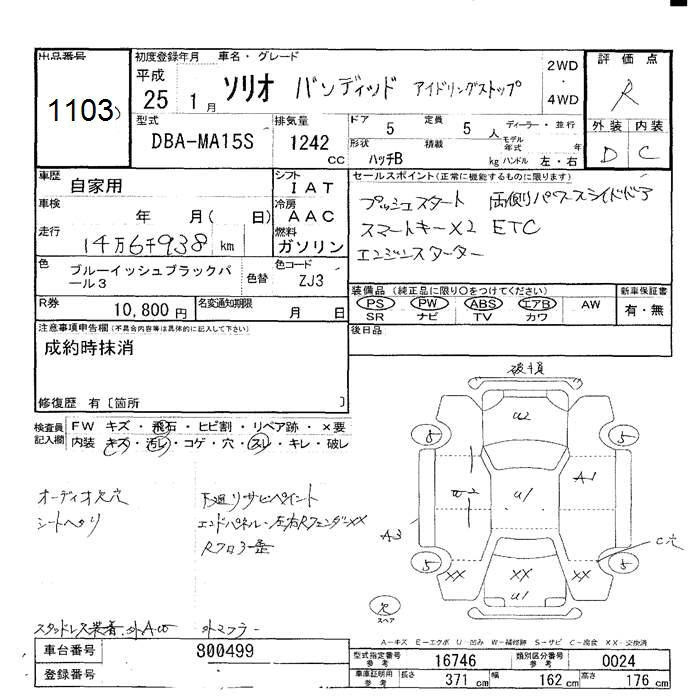 出品番号
1103
初度登録年月 車名・グレード
平成
25 1月 ソリオ バンディッド アイドリングストップ
2WD
・
4WD
評価点
R
外装 内装
D C
型式
DBA-MA15S
排気量
1242
cc
ドア 5
定員 5 人
ディーラー・並行
形状 ハッチB
積載 kg
モデル年式 年
ハンドル 左・右
車歴
自家用
シフト
IAT
車検
年 月( 日)
冷房
AAC
走行
14万6千938 km
燃料
ガソリン
色
ブルーイッシュブラックパール3
色替
色コード
ZJ3
R券
10,800円
名変通知期限
月 日
セールスポイント(正常に機能するものに限ります)
プッシュスタート 両側パワースライドドア
スマートキーX2 ETC
エンジンスターター
装備品(純正品に限り○をつけてください)
新車保証書
PS PW ABS エアB AW
有・無
SR ナビ TV カワ
後日品
注意事項申告欄(不具合内容等は具体的に記入して下さい)
成約時抹消
修復歴 有〔箇所 〕
検査員記入欄
FW キズ・飛石・ヒビ割・リペア跡・×要
内装・キズ・汚レ・コゲ・穴・スレ・キレ・破レ
オーディオ欠穴
シートヘタリ
下廻りサビペイント
エンドパネル・左右RフェンダーXX
Rフロア歪
スタッドレス装着
外マフラー
破損
U2
5
5
A1
U1
A3
C穴
5
5
XX
XX
XX
U1
欠
スペア
A-キズ E-エクボ U-凹み W-補修跡 S-サビ C-腐食 XX-交換済
車台番号
800499
登録番号
型式指定番号 参考
16746
類別区分番号 参考
0024
車庫証明用 参考
長さ 371 cm
幅 162 cm
高さ 176 cm